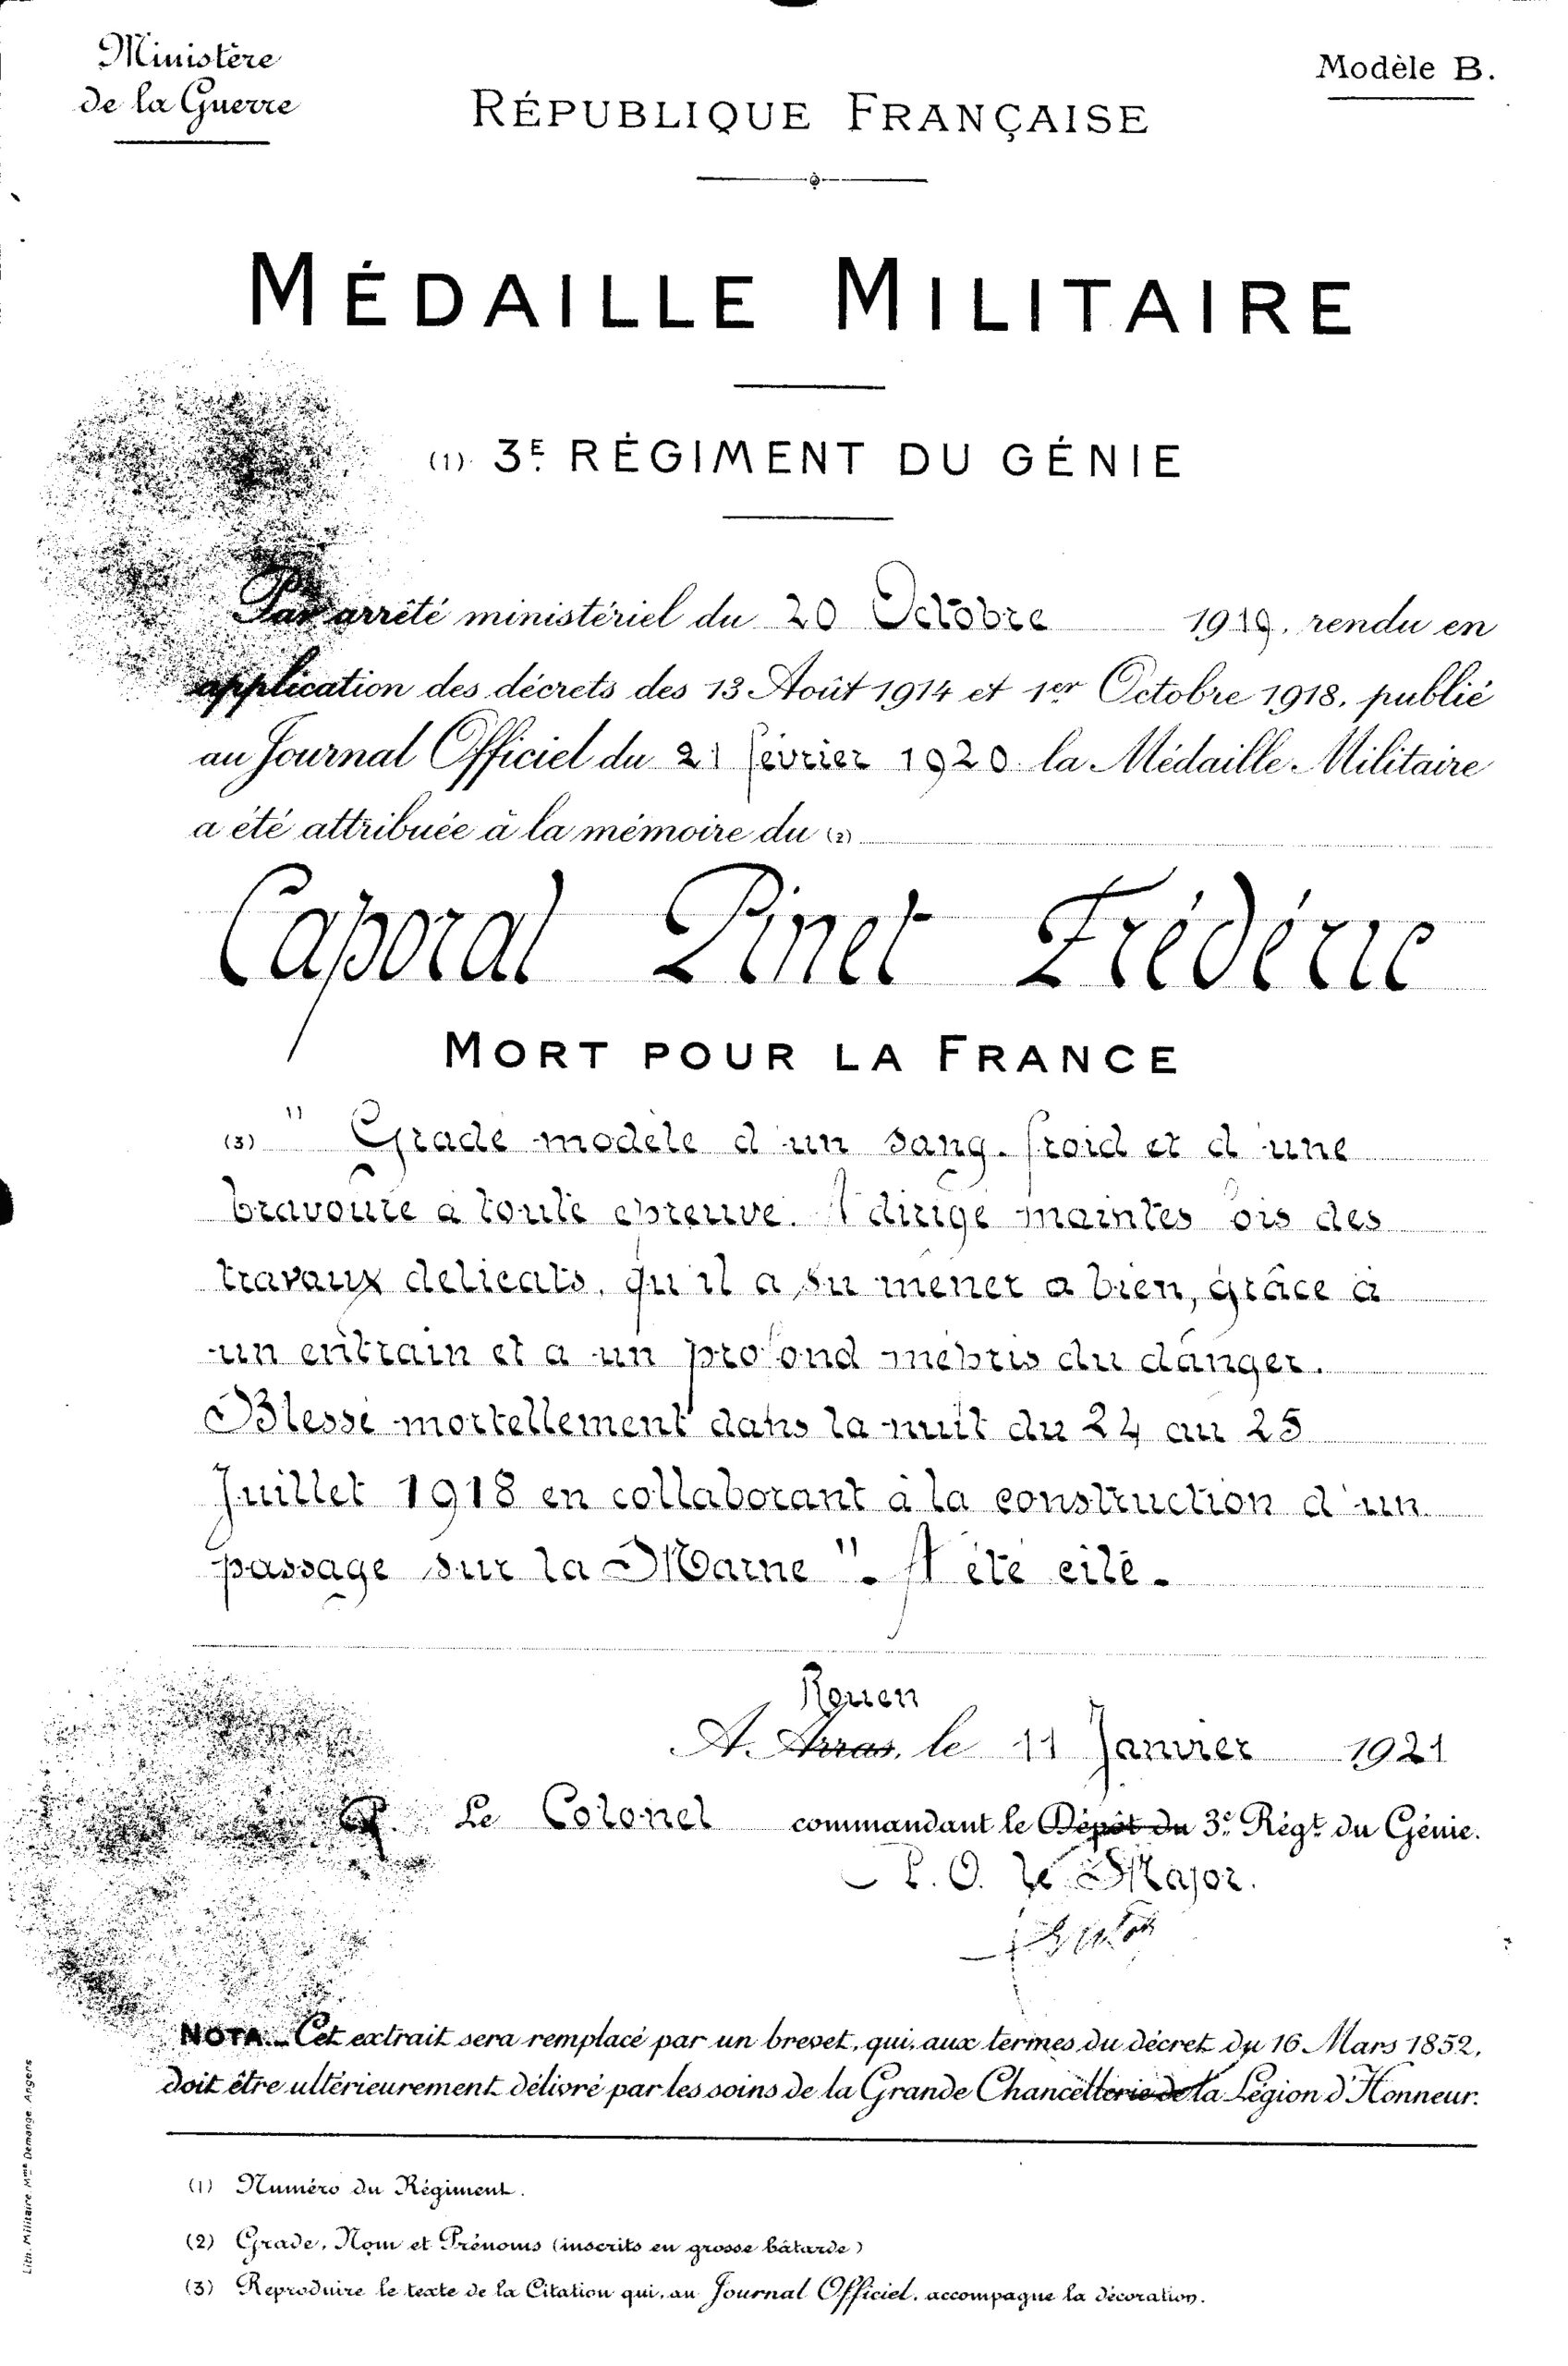 Ministère
de la Guerre
Modèle B.
RÉPUBLIQUE FRANÇAISE
MÉDAILLE MILITAIRE
(1) 3E RÉGIMENT DU GÉNIE
Par arrêté ministériel du 20 Octobre 1919, rendu en
application des décrets des 13 Août 1914 et 1er Octobre 1918, publié
au Journal Officiel du 21 février 1920 la Médaille Militaire
a été attribuée à la mémoire du (2)
Caporal Pinet Frédéric
MORT POUR LA FRANCE
(3) " Gradé modèle d'un sang-froid et d'une
bravoure à toute épreuve. A dirigé maintes fois des
travaux délicats, qu'il a su mener à bien, grâce à
un entrain et à un profond mépris du danger.
Blessé mortellement dans la nuit du 24 au 25
Juillet 1918 en collaborant à la construction d'un
passage sur la Marne ". A été cité.
Rouen
A Arras, le 11 Janvier 1921
Le Colonel commandant le Dépôt du 3e Régt du Génie.
P. O. Le Major.
NOTA._ Cet extrait sera remplacé par un brevet, qui, aux termes du décret du 16 Mars 1852,
doit être ultérieurement délivré par les soins de la Grande Chancellerie de la Légion d'Honneur.
(1) Numéro du Régiment.
(2) Grade, Nom et Prénoms (inscrits en grosse bâtarde)
(3) Reproduire le texte de la Citation qui, au Journal Officiel, accompagne la décoration.
Lith. Militaire Mme Demange. Angers